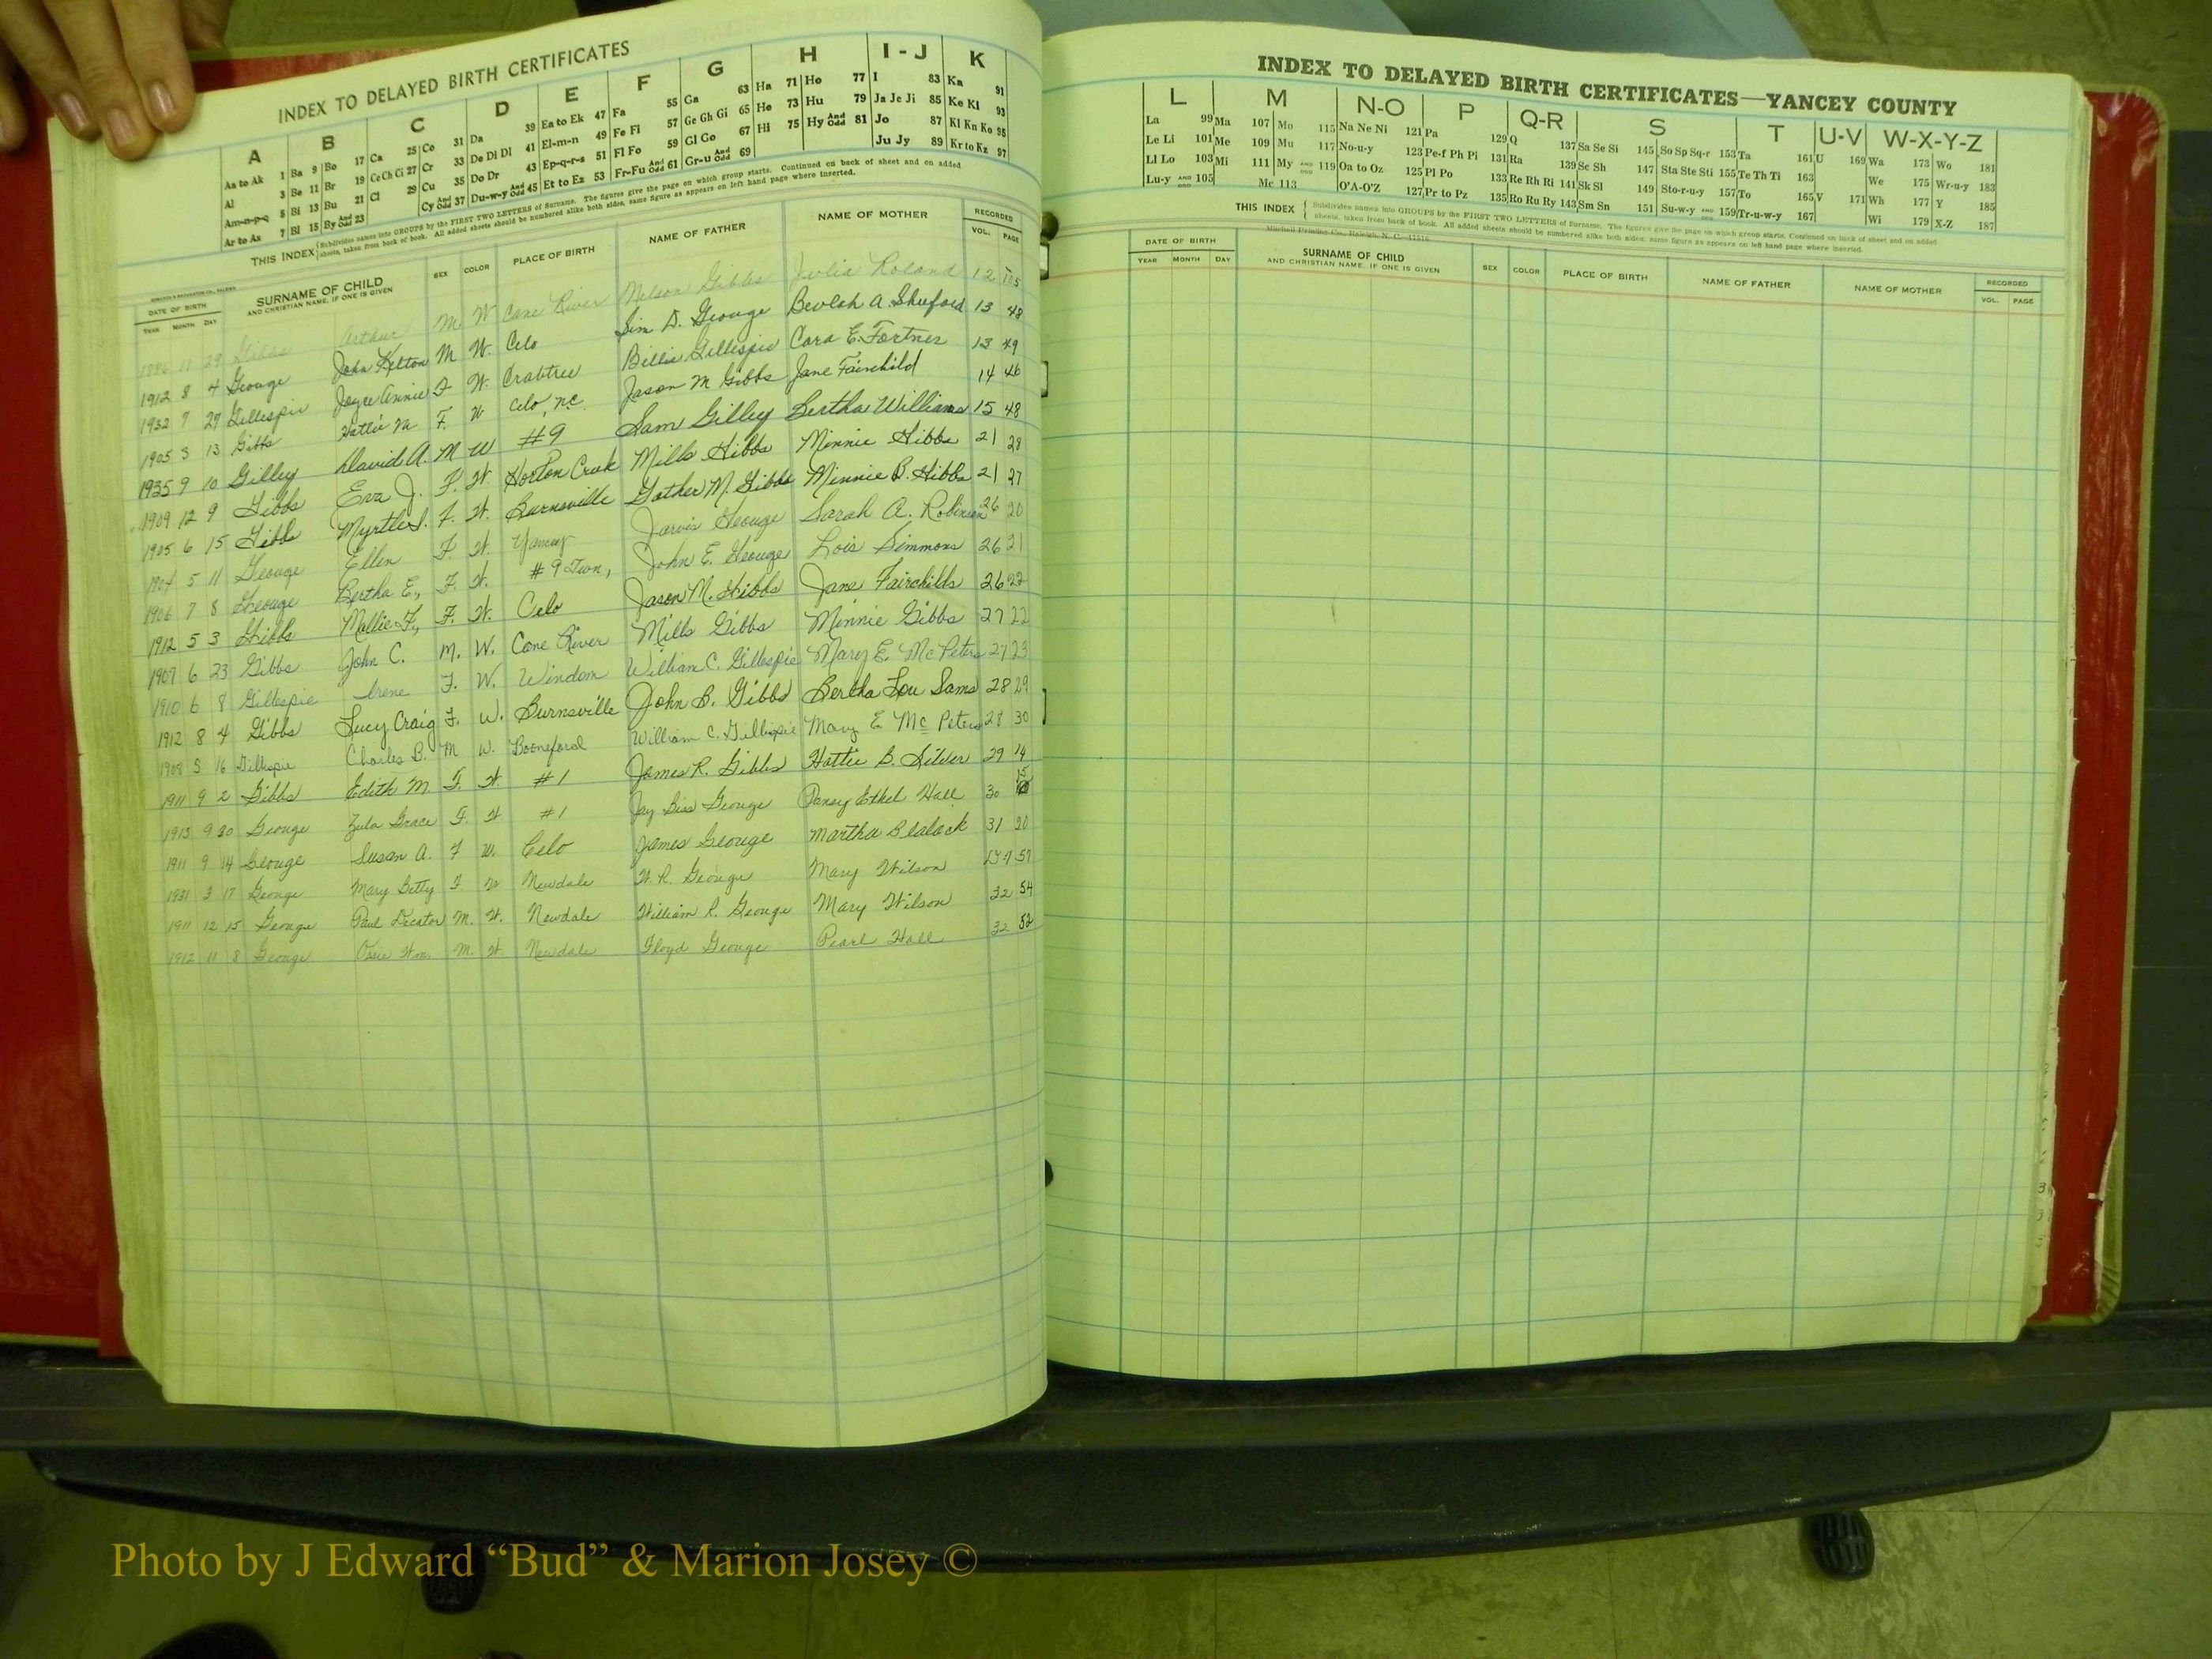 INDEX TO DELAYED BIRTH CERTIFICATES
A B C D E F G H I - J K
Aa to Ak 1 Ba 9 Bo 17 Ca 25 Co 31 Da 39 Ea to Ek 47 Fa 55 Ga 63 Ha 71 Ho 77 I 83 Ka 91
Al 3 Be 11 Br 19 Ce Ch Ci 27 Cr 33 De Di Dl 41 El-m-n 49 Fe Fi 57 Ge Gh Gi 65 He 73 Hu 79 Ja Je Ji 85 Ke Kl 93
Am-n-p-q 5 Bi 13 Bu 21 Cl 29 Cu 35 Do Dr 43 Ep-q-r-s 51 Fl Fo 59 Gl Go 67 Hi 75 Hy And Odd 81 Jo 87 Kl Kn Ko 95
Ar to Az 7 Bl 15 By And Odd 23 Cy And Odd 37 Du-w-y And Odd 45 Et to Ez 53 Fr-Fu And Odd 61 Gr-u And Odd 69 Ju Jy 89 Kr to Kz 97
THIS INDEX Subdivides names into GROUPS by the FIRST TWO LETTERS of Surname. The figures give the page on which group starts. Continued on back of sheet and on added
sheets, taken from back of book. All added sheets should be numbered alike both sides, same figure as appears on left hand page where inserted.
DATE OF BIRTH SURNAME OF CHILD SEX COLOR PLACE OF BIRTH NAME OF FATHER NAME OF MOTHER RECORDED
YEAR MONTH DAY AND CHRISTIAN NAME, IF ONE IS GIVEN VOL. PAGE
1886 11 29 Gibbs Arthur M. W Cane River Nelson Gibbs Julia Roland 12 105
1912 8 4 George John Kelton M W. Celo Sim D. George Beulah A. Shuford 13 48
1932 7 29 Gillespie Joyce Annie F W. Crabtree Billie Gillespie Cora E. Fortner 13 49
1905 3 13 Gibbs Hattie M F. W Celo, N.C. Jason M Gibbs Jane Fairchild 14 46
1935 9 10 Gilley David A. M W #9 Sam Gilley Bertha Williams 15 48
1909 12 9 Gibbs Eva J. F. W. Horton Creek Mills Gibbs Minnie Gibbs 21 28
1905 6 15 Gibbs Myrtle F. W. Burnsville Gather M. Gibbs Minnie B. Gibbs 21 27
1904 5 11 George Ellen F. W. Yancey Jarvis George Sarah A. Robinson 26 20
1906 7 8 George Bertha E., F. W. #9 Twn, John E. George Lois Simmons 26 21
1912 5 3 Gibbs Mollie F., F. W. Celo Jason M. Gibbs Jane Fairchilds 26 22
1907 6 23 Gibbs John C. M. W. Cane River Mills Gibbs Minnie Gibbs 27 22
1910 6 8 Gillespie Irene F. W. Windom William C. Gillespie Mary E. McPeters 27 23
1912 8 4 Gibbs Lucy Craig F. W. Burnsville John B. Gibbs Bertha Lou Sams 28 29
1908 3 16 Gillespie Charles B. M W. Booneford William C. Gillespie Mary E. McPeters 28 30
1911 9 2 Gibbs Edith M F. W. #1 James R. Gibbs Hattie B. Silver 29 14
1913 9 20 George Zula Grace F. W #1 Jay Biss George Pansy Ethel Hall 30 15
1911 9 14 George Susan A. F W. Celo James George Martha Blalock 31 20
1931 3 17 George Mary Betty F. W Newdale W. R. George Mary Wilson 57
1911 12 15 George Paul Decator M. W. Newdale William R. George Mary Wilson 32 54
1912 11 8 George Ossie Wm. M. W. Newdale Floyd George Pearl Hall 32 52
INDEX TO DELAYED BIRTH CERTIFICATES—YANCEY COUNTY
L M N-O P Q-R S T U-V W-X-Y-Z
La 99 Ma 107 Mo 115 Na Ne Ni 121 Pa 129 Q 137 Sa Se Si 145 So Sp Sq-r 153 Ta 161 U 169 Wa 173 Wo 181
Le Li 101 Me 109 Mu 117 No-u-y 123 Pe-f Ph Pi 131 Ra 139 Sc Sh 147 Sta Ste Sti 155 Te Th Ti 163 We 175 Wr-u-y 183
Ll Lo 103 Mi 111 My AND ODD 119 Oa to Oz 125 Pl Po 133 Re Rh Ri 141 Sk Sl 149 Sto-r-u-y 157 To 165 V 171 Wh 177 Y 185
Lu-y AND ODD 105 Mc 113 O'A-O'Z 127 Pr to Pz 135 Ro Ru Ry 143 Sm Sn 151 Su-w-y AND ODD 159 Tr-u-w-y 167 Wi 179 X-Z 187
THIS INDEX Subdivides names into GROUPS by the FIRST TWO LETTERS of Surname. The figures give the page on which group starts. Continued on back of sheet and on added
sheets, taken from back of book. All added sheets should be numbered alike both sides, same figure as appears on left hand page where inserted.
Mitchell Printing Co., Raleigh, N. C.
DATE OF BIRTH SURNAME OF CHILD SEX COLOR PLACE OF BIRTH NAME OF FATHER NAME OF MOTHER RECORDED
YEAR MONTH DAY AND CHRISTIAN NAME, IF ONE IS GIVEN VOL. PAGE
Photo by J Edward “Bud” & Marion Josey ©